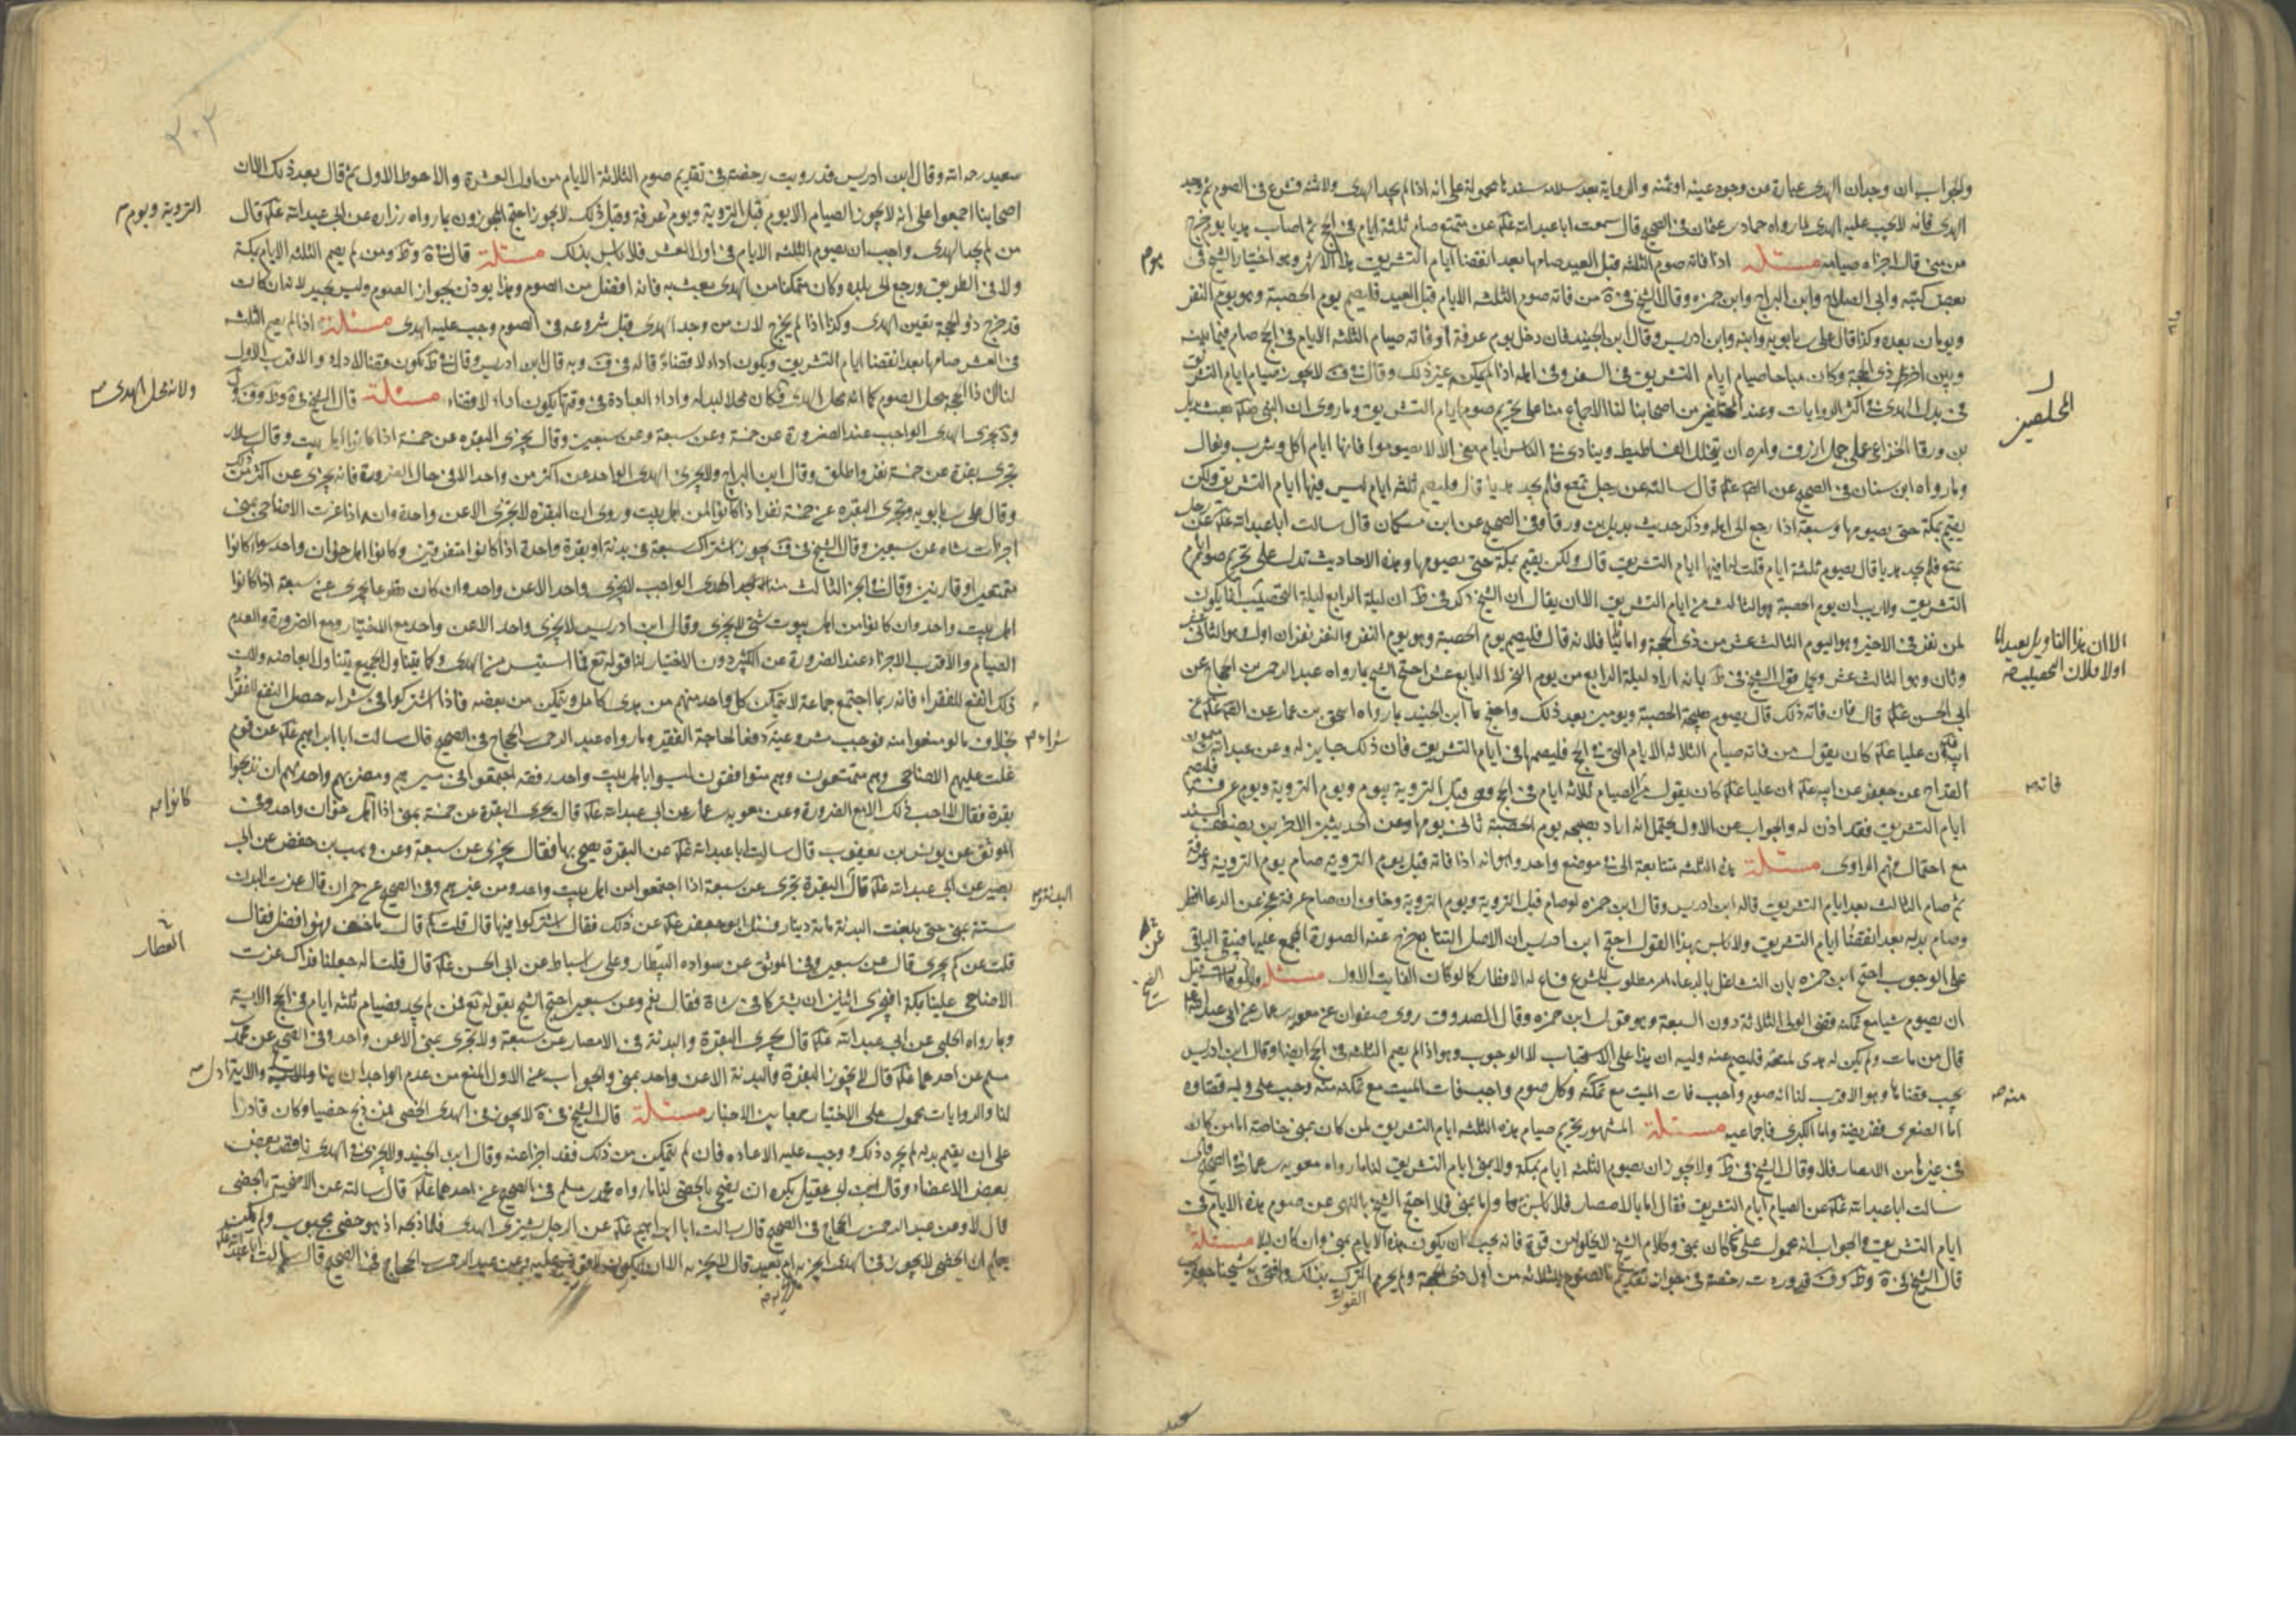 والجواب ان وجدان الهدى عبارة عن وجود عينه او ثمنه والرواية بعد سلامة سندها محمولة على انه اذا لم يجد الهدى ولا ثمنه وشرع فى الصوم ثم وجد
الهدى فانه لا يجب عليه الهدى لما رواه حماد بن عثمان فى الصحيح قال سمعت ابا عبد الله عن متمتع صام ثلثة ايام فى الحج ثم اصاب هديا يوم خرج
من منى قال اجزاه صيامه مسئلة اذا فاته صوم الثلثة قبل العيد صامها بعد انقضا ايام التشريق هذا الاشهر وهو اختيار الشيخ فى
بعض كتبه وابى الصلاح وابن البراج وابن حمزه وقال الشيخ فى من فاته صوم الثلثه الايام قبل العيد فليصم يوم الحصبة وهو يوم النفر
ويومان بعده وكذا قال على بن بابويه وابنه وابن ادريس وقال ابن الجنيد فان دخل يوم عرفة او فاته صيام الثلثه الايام فى الحج صام فيما بينه
وبين اخر ذى الحجة وكان مباحا صيام ايام التشريق فى السفر وفى اهله اذا لم يمكنه غير ذلك وقال لا يجوز صيام ايام التشريق
فى بدل الهدى فى اكثر الروايات وعند المحصلين من اصحابنا لنا الاجماع منا على تحريم صوم ايام التشريق وما روى ان النبى بعث بديل
بن ورقا الخزاعى على جمل ازرق وامره ان يتخلل الفساطيط وينادى فى الناس ايام منى الا لا تصوموا فانها ايام اكل وشرب وبعال
وما رواه ابن سنان فى الصحيح عن قال سالته عن رجل تمتع فلم يجد هديا قال فليصم ثلثة ايام ليس فيها ايام التشريق ولكن
يقيم بمكة حتى يصومها وسبعة اذا رجع الى اهله وذكر حديث بديل بن ورقا وفى الصحيح عن ابن مسكان قال سالت ابا عبد الله عن رجل
تمتع فلم يجد هديا قال يصوم ثلثة ايام قلت له افيها ايام التشريق قال لا ولكن يقيم بمكة حتى يصومها وهذه الاحاديث تدل على تحريم صوم ايام
التشريق ولا ريب ان يوم الحصبة هو الثالث من ايام التشريق الا ان يقال ان الشيخ ذكر فى ان ليلة الرابع ليلة التحصيب انما يكون
لمن نفر فى الاخير وهو اليوم الثالث عشر من ذى الحجة واما ثانيا فلانه قال فليصم يوم الحصبة وهو يوم النفر والنفر نفران اول وهو الثانى عشر
وثان وهو الثالث عشر ويحمل قول الشيخ فى بانه اراد ليلة الرابع من يوم النحر لا الرابع عشر احتج الشيخ بما رواه عبد الرحمن بن الحجاج عن
ابى الحسن قال فان فاته ذلك قال يصوم صبيحة الحصبة ويومين بعد ذلك واحتج ابن الجنيد بما رواه اسحق بن عمار عن
ابيه ان عليا كان يقول من فاته صيام الثلاثة الايام التى فى الحج فليصمها فى ايام التشريق فان ذلك جايز له وعن عبد الله بن ميمون
القداح عن جعفر عن ابيه ان عليا كان يقول من فاته صيام ثلاثة ايام فى الحج وهى قبل التروية بيوم ويوم التروية ويوم عرفة فليصم
ايام التشريق فقد اذن له والجواب عن الاول يحتمل انه اراد بصبيحة يوم الحصبة ثانى يومها وعن الحديثين الاخرين بضعف السند
مع احتمال وهم الراوى مسئلة هذه الثلثة متتابعة الا فى موضع واحد وهو انه اذا فاته قبل يوم التروية صام يوم التروية وعرفة
ثم صام الثالث بعد ايام التشريق قاله ابن ادريس وقال ابن حمزه لو صام قبل التروية ويوم التروية وخاف ان صام عرفة عجز عن الدعاء افطر
وصام بدله بعد انقضا ايام التشريق ولا باس بهذا القول احتج ابن ادريس ان الاصل التتابع خرج عنه الصورة المجمع عليها فيبقى الباقى
على الوجوب احتج ابن حمزه بان التشاغل بالدعاء امر مطلوب للشرع فساغ له الافطار كما لو كان الفايت الاول مسئلة ولو مات قبل
ان يصوم شيا مع تمكنه قضى الولى الثلاثة دون السبعة وهو قول ابن حمزه وقال الصدوق روى صفوان عن معوية بن عمار عن ابى عبد الله
قال من مات ولم يكن له هدى لمتعته فليصم عنه وليه ان هذا على الاستحباب لا الوجوب وهو اذا لم يصم الثلثة فى الحج ايضا وقال ابن ادريس
يجب قضاها وهو الاقرب لنا انه صوم واجب فات الميت مع تمكنه وكل صوم واجب فات الميت مع تمكنه منه وجب على وليه قضاوه
اما الصغرى ففرضية واما الكبرى فاجماعيه مسئلة المشهور تحريم صيام هذه الثلثة ايام التشريق لمن كان بمنى خاصة اما من كان
فى غيرها من الامصار فلا وقال الشيخ فى ولا يجوز ان يصوم الثلثة ايام بمكة ولا بمنى ايام التشريق لنا ما رواه معوية بن عمار فى الصحيح قال
سالت ابا عبد الله عن الصيام ايام التشريق فقال اما بالامصار فلا باس بها واما بمنى فلا احتج الشيخ بالنهى عن صوم هذه الايام فى
ايام التشريق والجواب انه محمول على من كان بمنى وكلام الشيخ لا يخلو من قوة فانه يجب ان يكون هذه الايام بمنى وان كان ليلا مسئلة
قال الشيخ فى وردت رخصة فى جواز تقديم الصوم الثلاثة من اول ذى الحجة
يوم
المحصلين
الا ان هذا التاويل بعيد اما
اولا فلان التحصيب
فاته
منه
سعيد رحمه الله وقال ابن ادريس قد رويت رخصة فى تقديم صوم الثلاثة الايام من اول العشرة والاحوط الاول ثم قال بعد ذلك الا ان
اصحابنا اجمعوا على انه لا يجوز الصيام الا يوم قبل التروية ويوم عرفة وقبل ذلك لا يجوز احتج المجوزون بما رواه زراره عن ابى عبد الله قال
من لم يجد الهدى واحب ان يصوم الثلثة الايام فى اول العشر فلا باس بذلك مسئلة قال ومن لم يصم الثلثة الايام بمكة
ولا فى الطريق ورجع الى بلده وكان متمكنا من الهدى بعث به فانه افضل من الصوم وهذا يوذن بجواز الصوم وليس بجيد لانه ان كان
قد خرج ذو الحجة تعين الهدى وكذا اذا لم يخرج لان من وجد الهدى قبل شروعه فى الصوم وجب عليه الهدى مسئلة اذا لم يصم الثلثة
فى العشر صامها بعد انقضا ايام التشريق ويكون اداء لا قضاء قاله فى وبه قال ابن ادريس وقال يكون قضا لا اداء والاقرب الاول
لنا ان ذا الحجة محل الصوم كما انه محل الهدى فكان محلا لبدله واداء العبادة فى وقتها يكون اداء لا قضاء مسئلة قال الشيخ فى
ويجزى الهدى الواجب عند الضرورة عن خمسة وعن سبعة وعن سبعين وقال يجزى البقره عن خمسة اذا كانوا اهل بيت وقال سلار
يجزى بقرة عن خمسة نفر واطلق وقال ابن البراج ولا يجزى الهدى الواحد عن اكثر من واحد الا فى حال الضرورة فانه يجزى عن اكثر من ذلك
وقال على بن بابويه ويجزى البقره عن خمسة نفر اذا كانوا من اهل بيت وروى ان البقره لا تجزى الا عن واحدة وانه اذا عزت الاضاحى بمنى
اجزات شاه عن سبعين وقال الشيخ فى يجوز اشتراك سبعة فى بدنة او بقرة واحدة اذا كانوا متفرقين وكانوا اهل خوان واحد سواء كانوا
متمتعين او قارنين وقال فى الجز الثالث الهدى الواجب لا يجزى واحد الا عن واحد وان كان تطوعا يجزى عن سبعة اذا كانوا
اهل بيت واحد وان كانوا من اهل بيوت شتى لا يجزى وقال ابن ادريس لا يجزى واحد الا عن واحد مع الاختيار ومع الضرورة والعدم
الصيام والاقرب الاجزاء عند الضرورة عن الكثير دون الاختيار لنا قوله تع فما استيسر من الهدى وكما يتناول الجميع يتناول ابعاضه ولان
ذلك انفع للفقراء فانه ربما اجتمع جماعة لا يتمكن كل واحد منهم من هدى كامل ويتمكن من بعضه فاذا اشتركوا فى شرائه حصل النفع للفقراء
بخلاف ما لو منعوا منه فوجب مشروعيته دفعا لحاجة الفقير وما رواه عبد الرحمن بن الحجاج فى الصحيح قال سالت ابا ابراهيم عن قوم
غلت عليهم الاضاحى وهم متمتعون وهم مترافقون ليسوا باهل بيت واحد رفقة اجتمعوا فى مسيرهم ومضربهم واحد لهم ان يذبحوا
بقرة فقال لا احب ذلك الا مع الضرورة وعن معوية بن عمار عن ابى عبد الله قال يجزى البقرة عن خمسة بمنى اذا كانوا اهل خوان واحد وفى
الموثق عن يونس بن يعقوب قال سالت ابا عبد الله عن البقرة يضحى بها فقال يجزى عن سبعة وعن وهب بن حفص عن ابى
بصير عن ابى عبد الله قال البقرة تجزى عن سبعة اذا اجتمعوا من اهل بيت واحد ومن غيرهم وفى الصحيح عن حمران قال عزت البدن
سنة بمنى حتى بلغت البدنة مائة دينار فسئل ابو جعفر عن ذلك فقال اشتركوا فيها قال قلت كم قال ما خف وهو افضل فقال
قلت عن كم يجزى قال عن سبعين وفى الموثق عن سواده القطان وعلى بن اسباط عن ابى الحسن قال قلنا له جعلنا فداك عزت
الاضاحى علينا بمكة افيجزى اثنين ان يشتركا فى شاة فقال نعم وعن سبعين احتج الشيخ بقوله تع فمن لم يجد فصيام ثلثة ايام فى الحج الاية
وما رواه الحلبى عن ابى عبد الله قال يجزى البقرة والبدنة فى الامصار عن سبعة ولا يجزى بمنى الا عن واحد وفى الصحيح عن محمد بن
مسلم عن احدهما قال لا يجوز البقرة والبدنة الا عن واحد بمنى والجواب عن الاول المنع من عدم الوجدان هنا والاية ادل
لنا والروايات محمولة على الاختيار جمعا بين الاخبار مسئلة قال الشيخ فى لا يجوز فى الهدى الخصى فمن ذبح خصيا وكان قادرا
على ان يقيم بدله لم يجزه ذلك ووجب عليه الاعادة فان لم يتمكن من ذلك فقد اجزا عنه وقال ابن الجنيد ولا يجزى فى الهدى ناقص بعض
بعض الاعضاء وقال ابن ابى عقيل يكره ان يضحى بالخصى لنا ما رواه محمد بن مسلم فى الصحيح عن احدهما قال سالته عن الاضحية بالخصى
قال لا وعن عبد الرحمن بن الحجاج فى الصحيح قال سالت ابا ابراهيم عن الرجل يشترى الهدى فلما ذبحه اذ هو خصى مجبوب ولم يكن
يعلم ان الخصى لا يجوز فى الهدى هل يجزيه ام يعيد قال لا يجزيه الا ان يكون لا قوة به عليه وعن عبد الرحمن بن الحجاج فى الصحيح قال سالت ابا عبد الله
التروية ويوم
ولانه محل الهدى
شراء
كانوا
البدنة
القطان